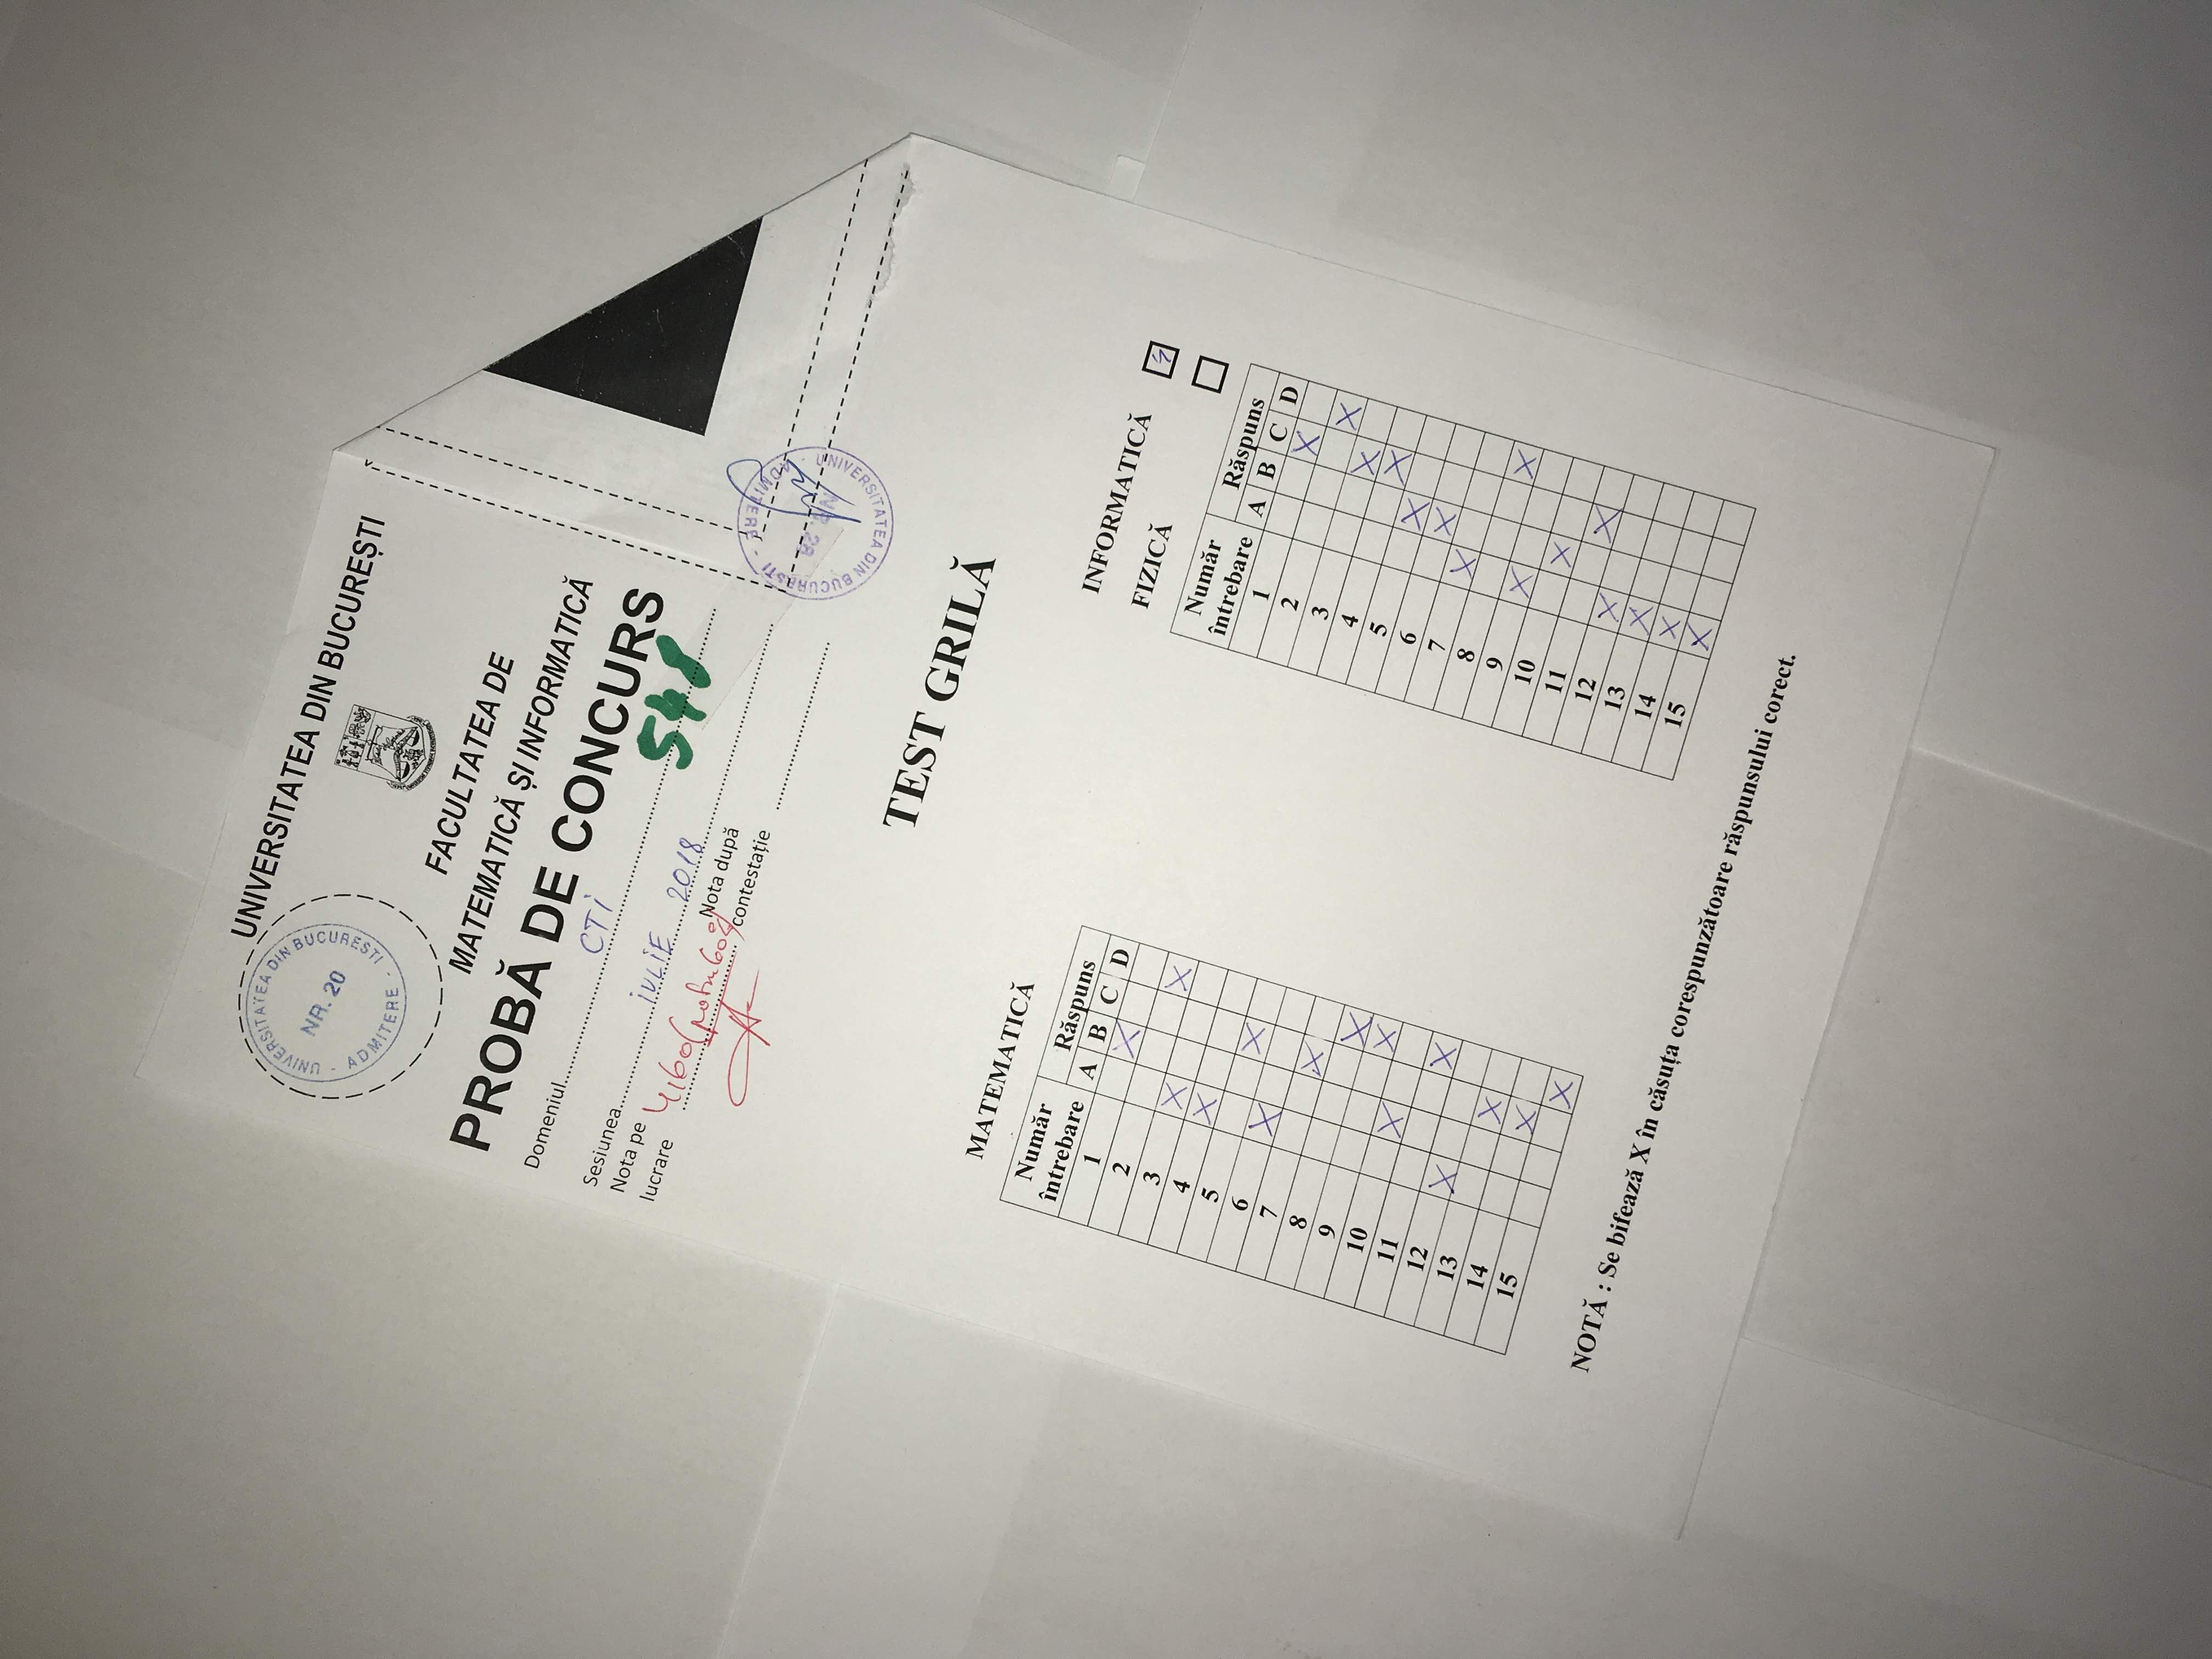 UNIVERSITATEA DIN BUCUREȘTI
UNIVERSITATEA DIN BUCURESTI - ADMITERE -
NR. 20
FACULTATEA DE
MATEMATICĂ ȘI INFORMATICĂ
PROBĂ DE CONCURS
Domeniul CTI
548
Sesiunea IULIE 2018
Nota pe lucrare 4,60 (patru 60%)
Nota după contestație
UNIVERSITATEA DIN BUCURESTI - ADMITERE -
NR. 28
TEST GRILĂ
MATEMATICĂ
Număr întrebare Răspuns
A B C D
1 X
2 X
3 X
4 X
5 X
6 X
7 X
8 X
9 X
10 X
11 X
12 X
13 X
14 X
15 X
INFORMATICĂ
FIZICĂ
Număr întrebare Răspuns
A B C D
1 X
2 X
3 X
4 X
5 X
6 X
7 X
8 X
9 X
10 X
11 X
12 X
13 X
14 X
15 X
NOTĂ : Se bifează X în căsuța corespunzătoare răspunsului corect.